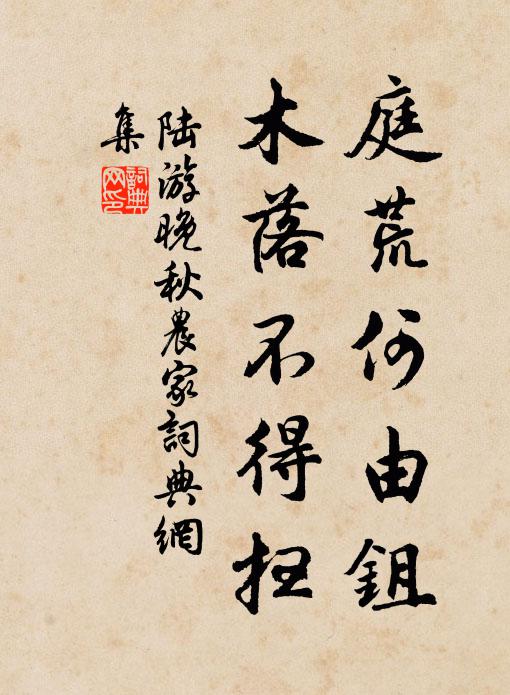 庭荒何由鉏
木落不得扫
陆游晚秋農家詞典網
集
詞典
网印